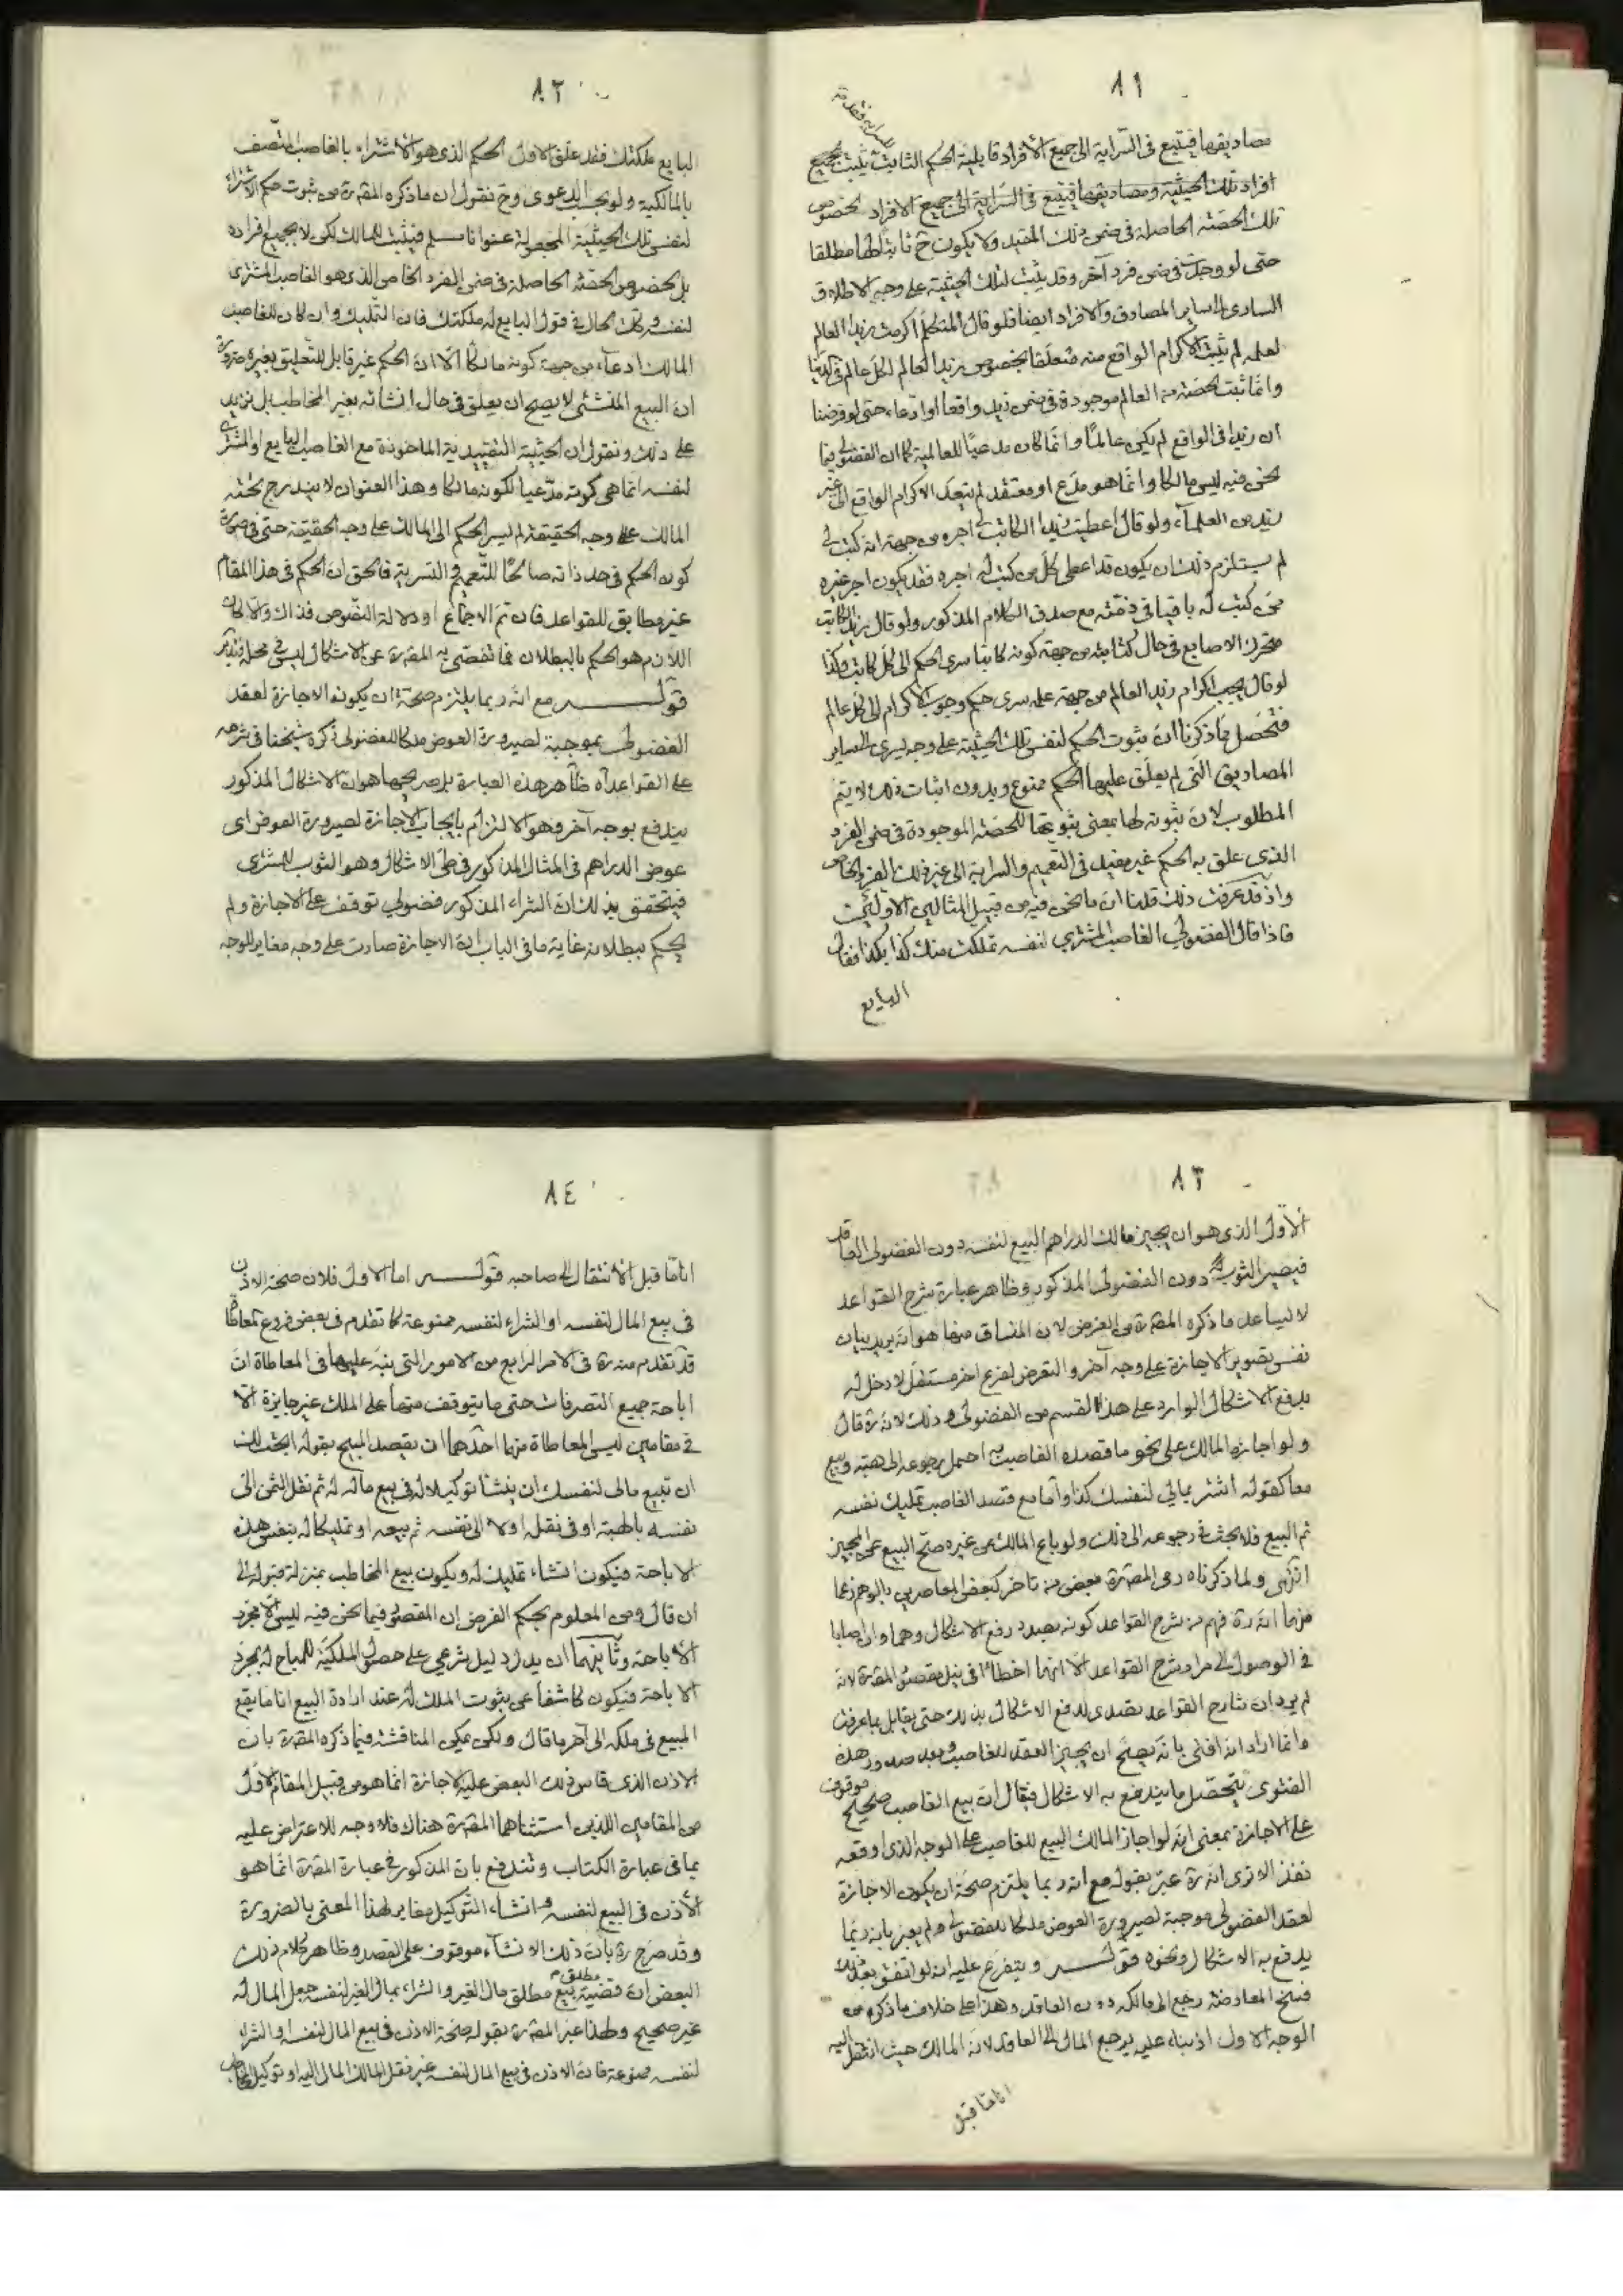 ٨١
مصاديقها فيتبع فى السّراية الى جميع الأفراد قابلية الحكم الثابت يثبت لجميع
افراد تلك الحيثية ومصاديقها فيتبع فى السّراية الى جميع الافراد لخصوص
تلك الحصّة الحاصلة فى ضمن ذلك المقيد ولا يكون ح ثابتا لها مطلقا
حتى لو وجدت فى ضمن فرد آخر وقد يثبت لتلك الحيثية على وجه الاطلاق
السارى الى ساير المصادق والافراد ايضا فلو قال المتكلّم اكرمت زيدا العالم
لعلمه لم يثبت الاكرام الواقع منه متعلّقا بخصوص زيد العالم لكلّ عالم فى الدنيا
وانّما ثبت لحصّة من العالم موجودة فى ضمن زيد واقعا او ادّعاء حتى لو فرضنا
ان زيدا فى الواقع لم يكن عالمًا وانّما كان مدّعيًا للعالمية كما ان الفضولى فيما
نحن فيه ليس مالكا وانّما هو مدّع او معتقد لم يتعدّ الاكرام الواقع الى غير
زيد من العلماء ولو قال اعطيت زيدا الكاتب لى اجره من جهة انه كتب لى
لم يستلزم ذلك ان يكون قد اعطى كلّ من كتب له اجره فقد يكون اجر غيره
ممّن كتب له باقيا فى ذمّته مع صدق الكلام المذكور ولو قال زيد الكاتب
متحرك الاصابع فى حال كتابته من جهة كونه كاتبا سرى الحكم الى كلّ كاتب وكذا
لو قال يجب اكرام زيد العالم من جهة علمه سرى حكم وجوب الاكرام الى كلّ عالم
فتحصّل ممّا ذكرنا انّ ثبوت الحكم لنفس تلك الحيثية على وجه يسرى الى ساير
المصاديق الّتى لم يعلّق عليها الحكم ممنوع وبدون اثبات ذلك لا يتم
المطلوب لانّ ثبوته لها بمعنى ثبوتها للحصّة الموجودة فى ضمن الفرد
الذى علق به الحكم غير مفيد فى التعميم والسراية الى غير ذلك الفرد الخاص
واذ قد عرفت ذلك قلنا انّ ما نحن فيه من قبيل المثالين الاوليين
فاذا قال الفضولي الغاصب المشترى لنفسه تملكت منك كذا بكذا فقال
البايع
٨٢
البايع ملكتك فقد علّق الاول الحكم الذى هو الاشتراء بالغاصب المتّصف
بالمالكية ولو بحسب الدعوى وح نقول ان ما ذكره المقرّة من ثبوت حكم الاشتراء
لنفس تلك الحيثية المجعولة عنوانا مسلم فيثبت للمالك لكن لا بجميع افراده
بل بخصوص الحصّة الحاصلة فى ضمن الفرد الخاص الذى هو الغاصب المشترى
لنفسه وكذا الحال فى قول البايع له ملكتك فان التّمليك وان كان للغاصب
المالك ادعاء من جهة كونه مالكًا الّا انّ الحكم غير قابل للتعليق بغيره ضرورة
انّ البيع المنشئى لا يصح ان يعلق فى حال انشائه بغير المخاطب بل نزيد
على ذلك ونقول ان الحيثية التقييدية الماخوذة مع الغاصب البايع او المشترى
لنفسه انّما هى كونه مدّعيا لكونه مالكا وهذا العنوان لا يندرج تحته
المالك على وجه الحقيقة فلم يسر الحكم الى المالك على وجه الحقيقة حتى فى صورة
كون الحكم فى حد ذاته صالحًا للتّعميم والتسرية فالحق ان الحكم فى هذا المقام
غير مطابق للقواعد فان تمّ الاجماع او دلالة النّصوص فذاك والّا كان
اللازم هو الحكم بالبطلان فما تفصّى به المقرة عن الاشكال ليس فى محلّه فتدبّر
قولـــه مع انّه ربما يلتزم صحّة ان يكون الاجازة لعقد
الفضولى موجبة لصيرورة العوض ملكا للفضولى ذكره شيخنا فى شرحه
على القواعد آه ظاهر هذه العبارة بل صريحها هو ان الاشكال المذكور
يندفع بوجه آخر وهو الالتزام بايجاب الاجازة لصيرورة العوض اى
عوض الدراهم فى المثال المذكور فى طىّ الاشكال وهو الثوب للمشترى
فيتحقق بذلك انّ الشراء المذكور فضولي توقف على الاجازة ولم
يحكم ببطلانه غاية ما فى الباب انّ الاجازة صادرت على وجه مغاير للوجه
٨٣
الاوّل الذى هو ان يجيز مالك الدراهم البيع لنفسه دون الفضولى العاقد
فيصير الثوب له دون الفضولى المذكور وظاهر عبارة شرح القواعد
لا يساعد ما ذكره المقرّة من الغرض لان المنساق منها هو انّه يريد بيان
نفس تصوير الاجازة على وجه آخر والتعرض لفرع اخر مستقل لا دخل له
بدفع الاشكال الوارد على هذا القسم من الفضولى وذلك لانه ره قال
ولو اجازه المالك على نحو ما قصده الغاصب احتمل رجوعه الى هبة وبيع
معا كقوله اشتر بمالي لنفسك كذا وامّا مع قصد الغاصب تمليك نفسه
ثم البيع فلا بحث فى رجوعه الى ذلك ولو باع المالك من غيره صحّ البيع عن المجيز
انتهى ولما ذكرناه رمى المقرّة بعض من تاخر كبعض المعاصرين بالوهم زعما
منهما انّه ره فهم من شرح القواعد كونه بصدد رفع الاشكال وهما وان اصابا
فى الوصول الى مراد شرح القواعد الّا انّهما اخطأا فى نيل مقصود المقرة لانه
لم يرد ان شارح القواعد تصدى لدفع الاشكال بذلك حتى يقابل بما عرفت
وانّما اراد انه افتى بانّه يصحّ ان يجيز العقد للغاصب وبعد صدور هذه
الفتوى يتحصّل ما يندفع به الاشكال فيقال انّ بيع الغاصب صحيح موقوف
على الاجازة بمعنى انّه لو اجاز المالك البيع للغاصب على الوجه الذى اوقعه
نفذ الا ترى انّه ره عبّر بقوله مع انه ربما يلتزم صحّة ان يكون الاجازة
لعقد الفضولى موجبة لصيرورة العوض ملكا للفضولى ولم يعبر بانه ربّما
يدفع به الاشكال ونحوه قولـــه ويتفرّع عليه انه لو اتفق بعد ذلك
فسخ المعاوضة رجع الى مالكه دون العاقد وهذا على خلاف ما ذكره من
الوجه الاول اذ بناء عليه يرجع المال الى العاقد لانّ المالك حيث انتقل اليه
اناما قبل
٨٤
اناما قبل الانتقال الى صاحبه قولـــه اما الاول فلان صحّة الاذن
فى بيع المال لنفسه او الشراء لنفسه ممنوعة كما تقدّم فى بعض فروع المعاطاة
قد تقدم منه ره فى الامر الرابع من الامور التى ينبه عليها فى المعاطاة انّ
اباحة جميع التصرفات حتى ما يتوقف منها على الملك غير جايزة الّا
فى مقامين ليس المعاطاة منهما احدهما ان يقصد المبيح بقوله ابحت لك
ان تبيع مالى لنفسك ان ينشا توكيلا له فى بيع ماله له ثم نقل الثمن الى
نفسه بالهبة او فى نقله اولا الى نفسه ثم بيعه او تمليكا له بنفس هذه
الاباحة فيكون انشاء تمليك له ويكون بيع المخاطب بمنزلة قبوله الى
ان قال ومن المعلوم بحكم الفرض ان المقصود فيما نحن فيه ليس الّا مجرّد
الاباحة وثانيهما ان يدلّ دليل شرعي على حصول الملكيّة للمباح له بمجرد
الاباحة فيكون كاشفا عن ثبوت الملك له عند ارادة البيع اناما يقع
المبيع فى ملكه الى آخر ما قال ولكن يمكن المناقشة فيما ذكره المقرّة بان
الاذن الذى قاس ذلك البعض عليه الاجازة انّما هو من قبيل المقام الاوّل
من المقامين اللّذين استثناهما المقرّة هناك فلا وجه للاعتراض عليه
بما فى عبارة الكتاب وتندفع بان المذكور فى عبارة المقرّة انّما هو
الاذن فى البيع لنفسه وانشاء التّوكيل مغاير لهذا المعنى بالضرورة
وقد صرّح ره بانّ ذلك الانشاء موقوف على القصد وظاهر كلام ذلك
البعض انّ قضيّة بيع مطلق مال الغير والشراء بمال الغير لنفسه جعل المال له
غير صحيح ولهذا عبّر المقرّة بقوله صحّة الاذن فى بيع المال لنفسه او الشراء
لنفسه ممنوعة فانّ الاذن فى بيع المال لنفسه غير نقل المالك المال اليه او توكيل